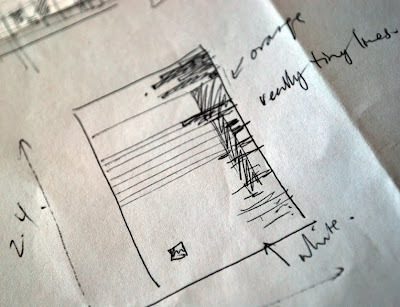 orange
really tiny lines.
2.4.
white.